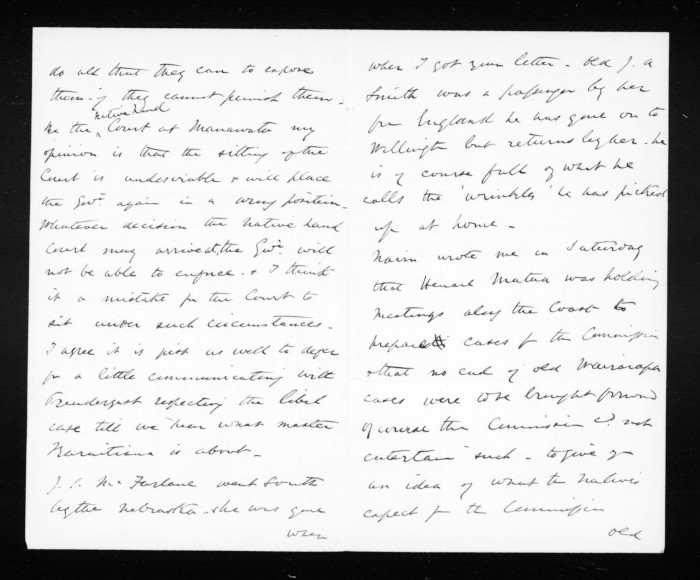 do all that they can to expose
them if they cannot punish them -
Re the Native Land Court at Manawatu my
opinion is that the sitting of the
Court is undesirable & will place
the Govt again in a wrong position -
Whatever decision the Native Land
Court may arrive at, the Govt will
not be able to enforce - & I think
it a mistake for the Court to
sit under such circumstances -
I agree it is just as well to defer
for a little communicating with
Prendergast respecting the libel
case till we hear what master
Karaitiana is about -
J. C. McFarlane went South
by the Nebraska - she was gone
when
when I got your letter - Old J. A
Smith was a passenger by her
from England he was gone on to
Wellington but returns by her - he
is of course full of what he
calls the 'wrinkles' he has picked
up at home -
Nairn wrote me on Saturday
that Henare Matua was holding
meetings along the Coast to
prepare cases for the Commission
& that no end of old Wairarapa
cases were to be brought forward
of course the Commission wd not
entertain such - to give you
an idea of what the Natives
expect for the Commission
old